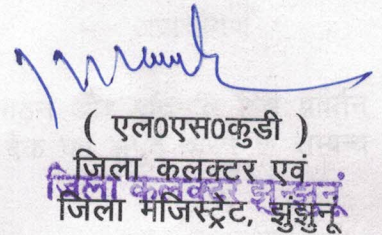 ( एल0एस0कुडी )
जिला कलक्टर एवं
जिला कलक्टर झुन्झुनूं
जिला मजिस्ट्रेट, झुंझुनू